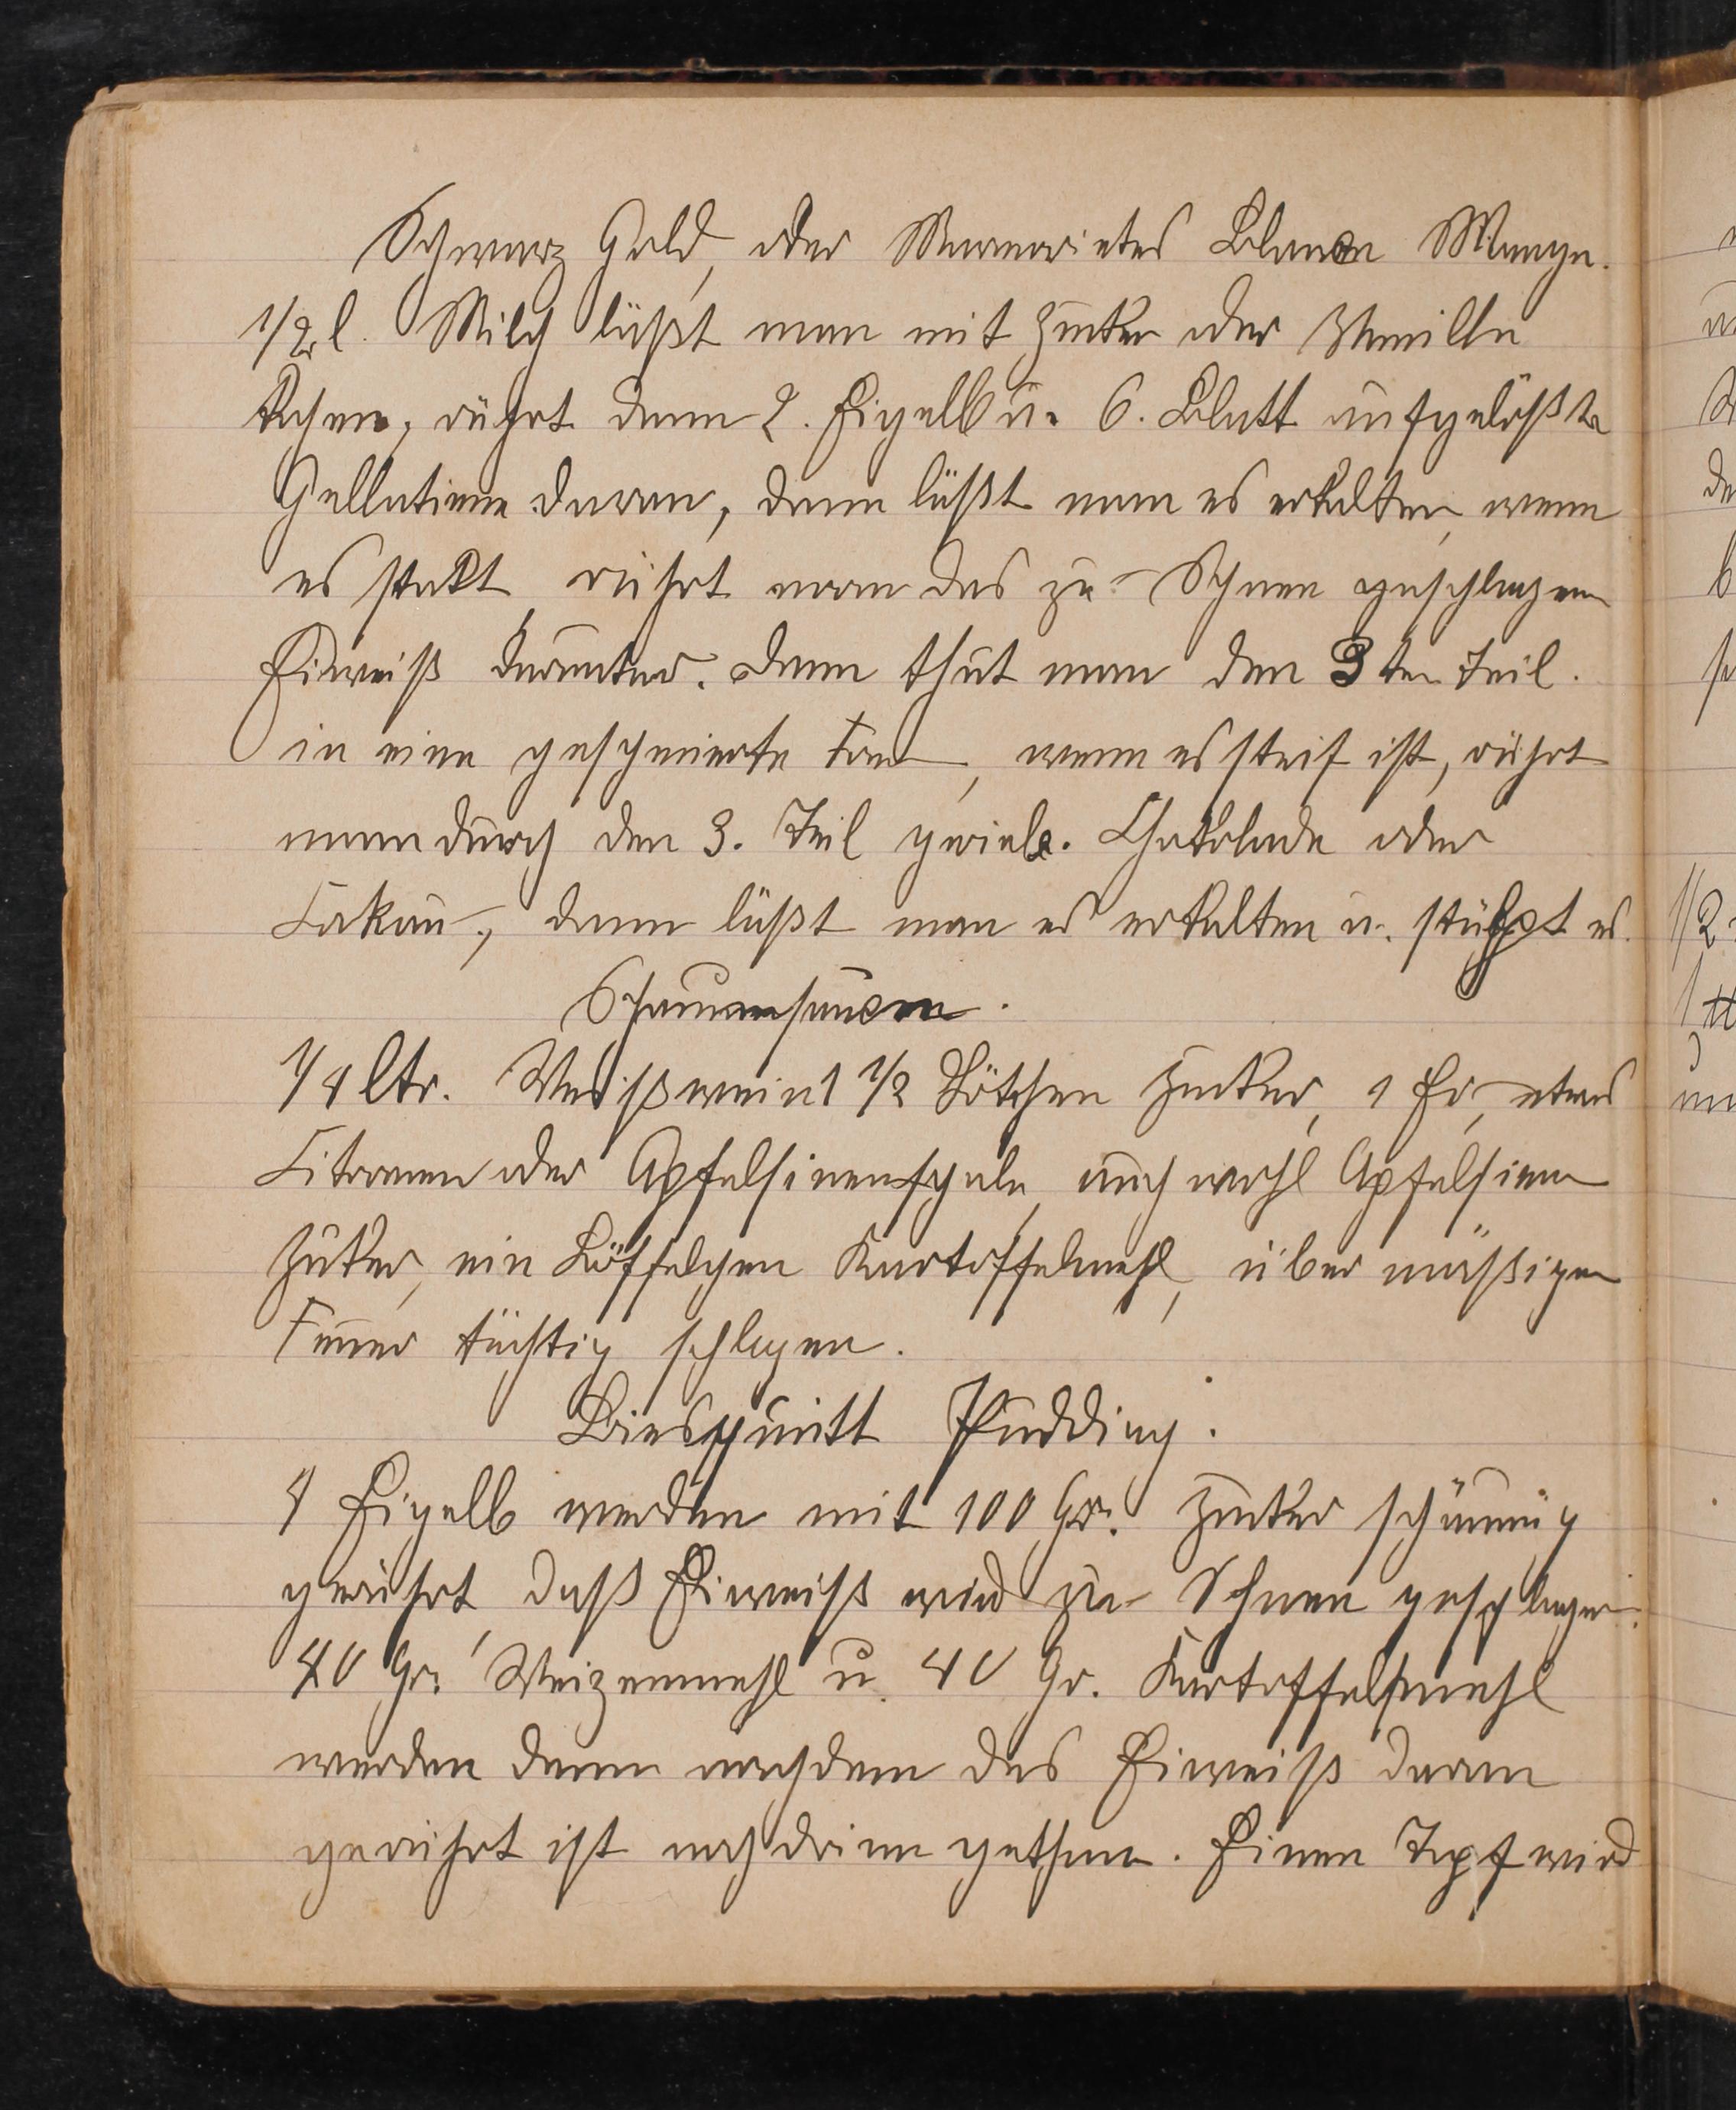 Schwarz Gold, oder Marmorietes Blanc Mange.
1/2 l. Milch läßt man mit Zucker oder Vanille
kochen, rührt dann 2. Eigelb u. 6. Blatt aufgelößte
Gellatiene daran, dann läßt man es erkalten, wenn
es stokt, rührt man das zu Schnee geschlagene
Eiweiß darunter. Dann thut man den 3ten Teil.
in eine geschmierte Form, wenn es steif ist, rührt
man durch den 3. Teil gerieb. Chokolade oder
Cakau, dann läßt man es erkalten u. stülpt es.
Schaumsauce.
1/4 ltr. Weißwein 1 1/2 Löthen Zucker, 1 Ei, etwas
Citronen oder Apfelsinenschale, auch wohl Apfelsinen
Zuker, ein Löffelchen Kartoffelmehl, über mäßigen
Feuer tüchtig schlagen.
Biesquitt Pudding.
4 Eigelb werden mit 100 Gr. Zucker schäumig
gerührt, daß Eiweiß wird zu Schnee geschlagen.
40 Gr. Weizenmehl u. 40 Gr. Kartoffelmehl
werden dann nachdem das Eiweiß daran
gerührt ist noch drinn gethan. Einen Topf wird